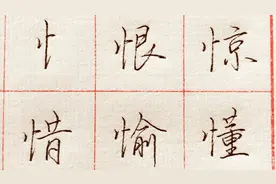 忄恨惊
惜愉懂